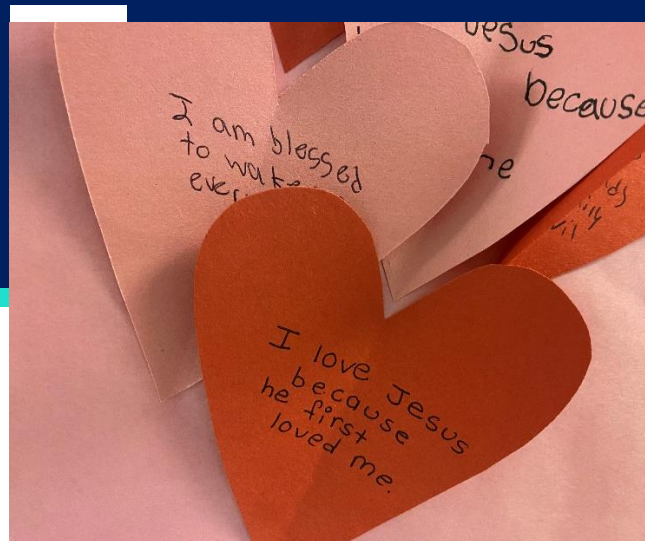 I am blessed
to wake
Jesus
because
I love Jesus
because
he first
loved me.